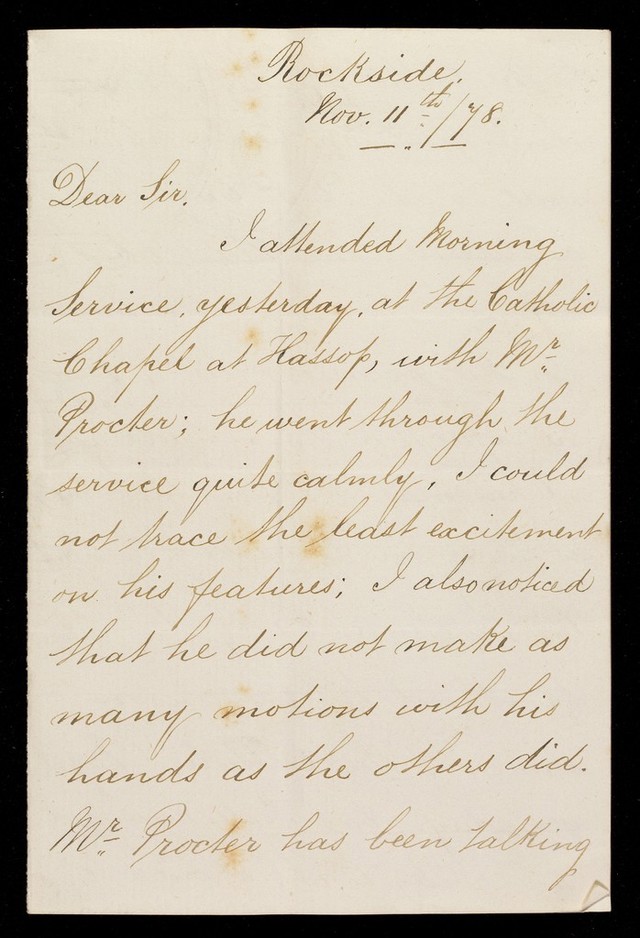 Rockside.
Nov. 11th/78.
Dear Sir.
I attended Morning
Service, yesterday, at the Catholic
Chapel at Hassop, with Mr.
Procter; he went through the
service quite calmly, I could
not trace the least excitement
on his features; I also noticed
that he did not make as
many motions with his
hands as the others did.
Mr. Procter has been talking